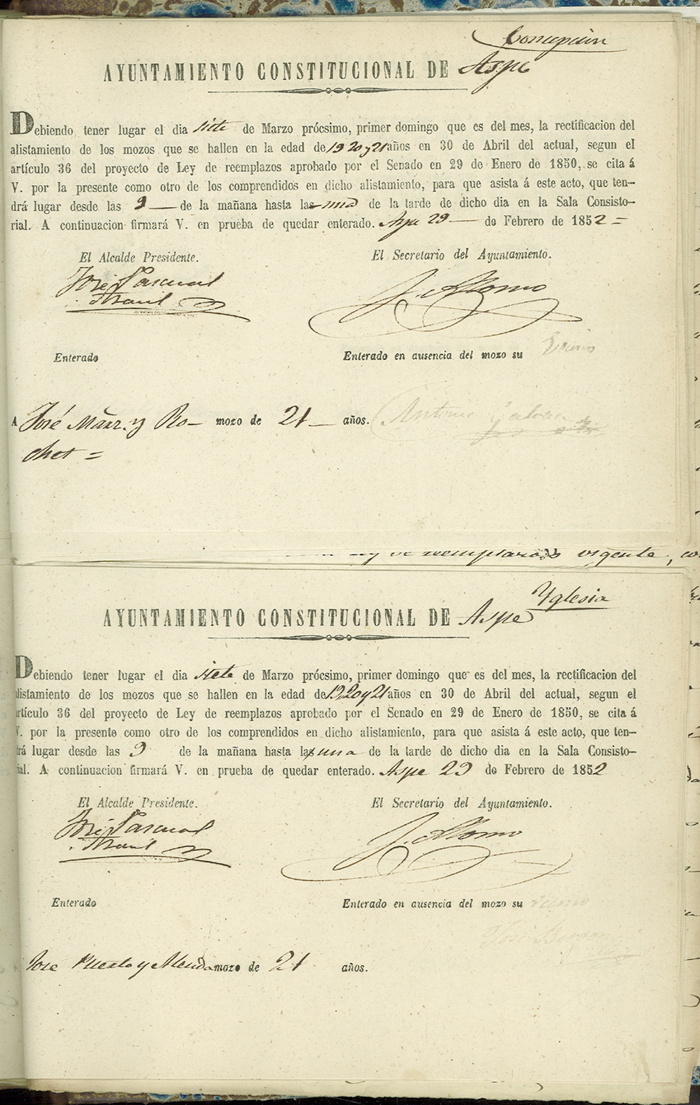 Concepcion
AYUNTAMIENTO CONSTITUCIONAL DE Aspe
Debiendo tener lugar el dia siete de Marzo prócsimo, primer domingo que es del mes, la rectificacion del
alistamiento de los mozos que se hallen en la edad de 19 20 y 21 años en 30 de Abril del actual, segun el
artículo 36 del proyecto de Ley de reemplazos aprobado por el Senado en 29 de Enero de 1850, se cita á
V. por la presente como otro de los comprendidos en dicho alistamiento, para que asista á este acto, que ten-
drá lugar desde las 9 — de la mañana hasta las una de la tarde de dicho dia en la Sala Consisto-
rial. A continuacion firmará V. en prueba de quedar enterado. Aspe 29 — de Febrero de 1852 =
El Alcalde Presidente. El Secretario del Ayuntamiento.
José Pascual
J. Alonso
Enterado Enterado en ausencia del mozo su
Antonio
A José Mñez. y Ro- mozo de 21 — años.
chet =
de reemplazos vigente, co
Yglesia
AYUNTAMIENTO CONSTITUCIONAL DE Aspe
Debiendo tener lugar el dia siete de Marzo prócsimo, primer domingo que es del mes, la rectificacion del
alistamiento de los mozos que se hallen en la edad de 19 20 y 21 años en 30 de Abril del actual, segun el
artículo 36 del proyecto de Ley de reemplazos aprobado por el Senado en 29 de Enero de 1850, se cita á
V. por la presente como otro de los comprendidos en dicho alistamiento, para que asista á este acto, que ten-
drá lugar desde las 9 de la mañana hasta la una de la tarde de dicho dia en la Sala Consisto-
rial. A continuacion firmará V. en prueba de quedar enterado. Aspe 29 de Febrero de 1852
El Alcalde Presidente. El Secretario del Ayuntamiento.
José Pascual
J. Alonso
Enterado Enterado en ausencia del mozo su
José
Jose Puerto y mozo de 21 años.